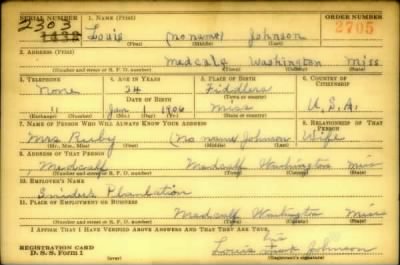 SERIAL NUMBER 1. NAME (Print) ORDER NUMBER
2303 Louie (no name) Johnson 2705
1438 (First) (Middle) (Last)
2. ADDRESS (Print)
Medcalf Washington Miss
(Number and street or R. F. D. number) (Town) (County) (State)
3. TELEPHONE 4. AGE IN YEARS 5. PLACE OF BIRTH 6. COUNTRY OF CITIZENSHIP
None 34 Fiddlers
DATE OF BIRTH (Town or county)
" Jan 1 1906 Miss U.S.A.
(Exchange) (Number) (Mo.) (Day) (Yr.) (State or country)
7. NAME OF PERSON WHO WILL ALWAYS KNOW YOUR ADDRESS 8. RELATIONSHIP OF THAT PERSON
Mrs (no name) Johnson Wife
(Mr., Mrs., Miss) (First) (Middle) (Last)
9. ADDRESS OF THAT PERSON
Medcalf Medcalf Washington Miss
(Number and street or R. F. D. number) (Town) (County) (State)
10. EMPLOYER'S NAME
Snider Plantation
11. PLACE OF EMPLOYMENT OR BUSINESS
Medcalf Washington Miss
(Number and street or R. F. D. number) (Town) (County) (State)
I AFFIRM THAT I HAVE VERIFIED ABOVE ANSWERS AND THAT THEY ARE TRUE.
his
REGISTRATION CARD
D. S. S. Form 1 Louie Johnson
(over) (Registrant's signature)